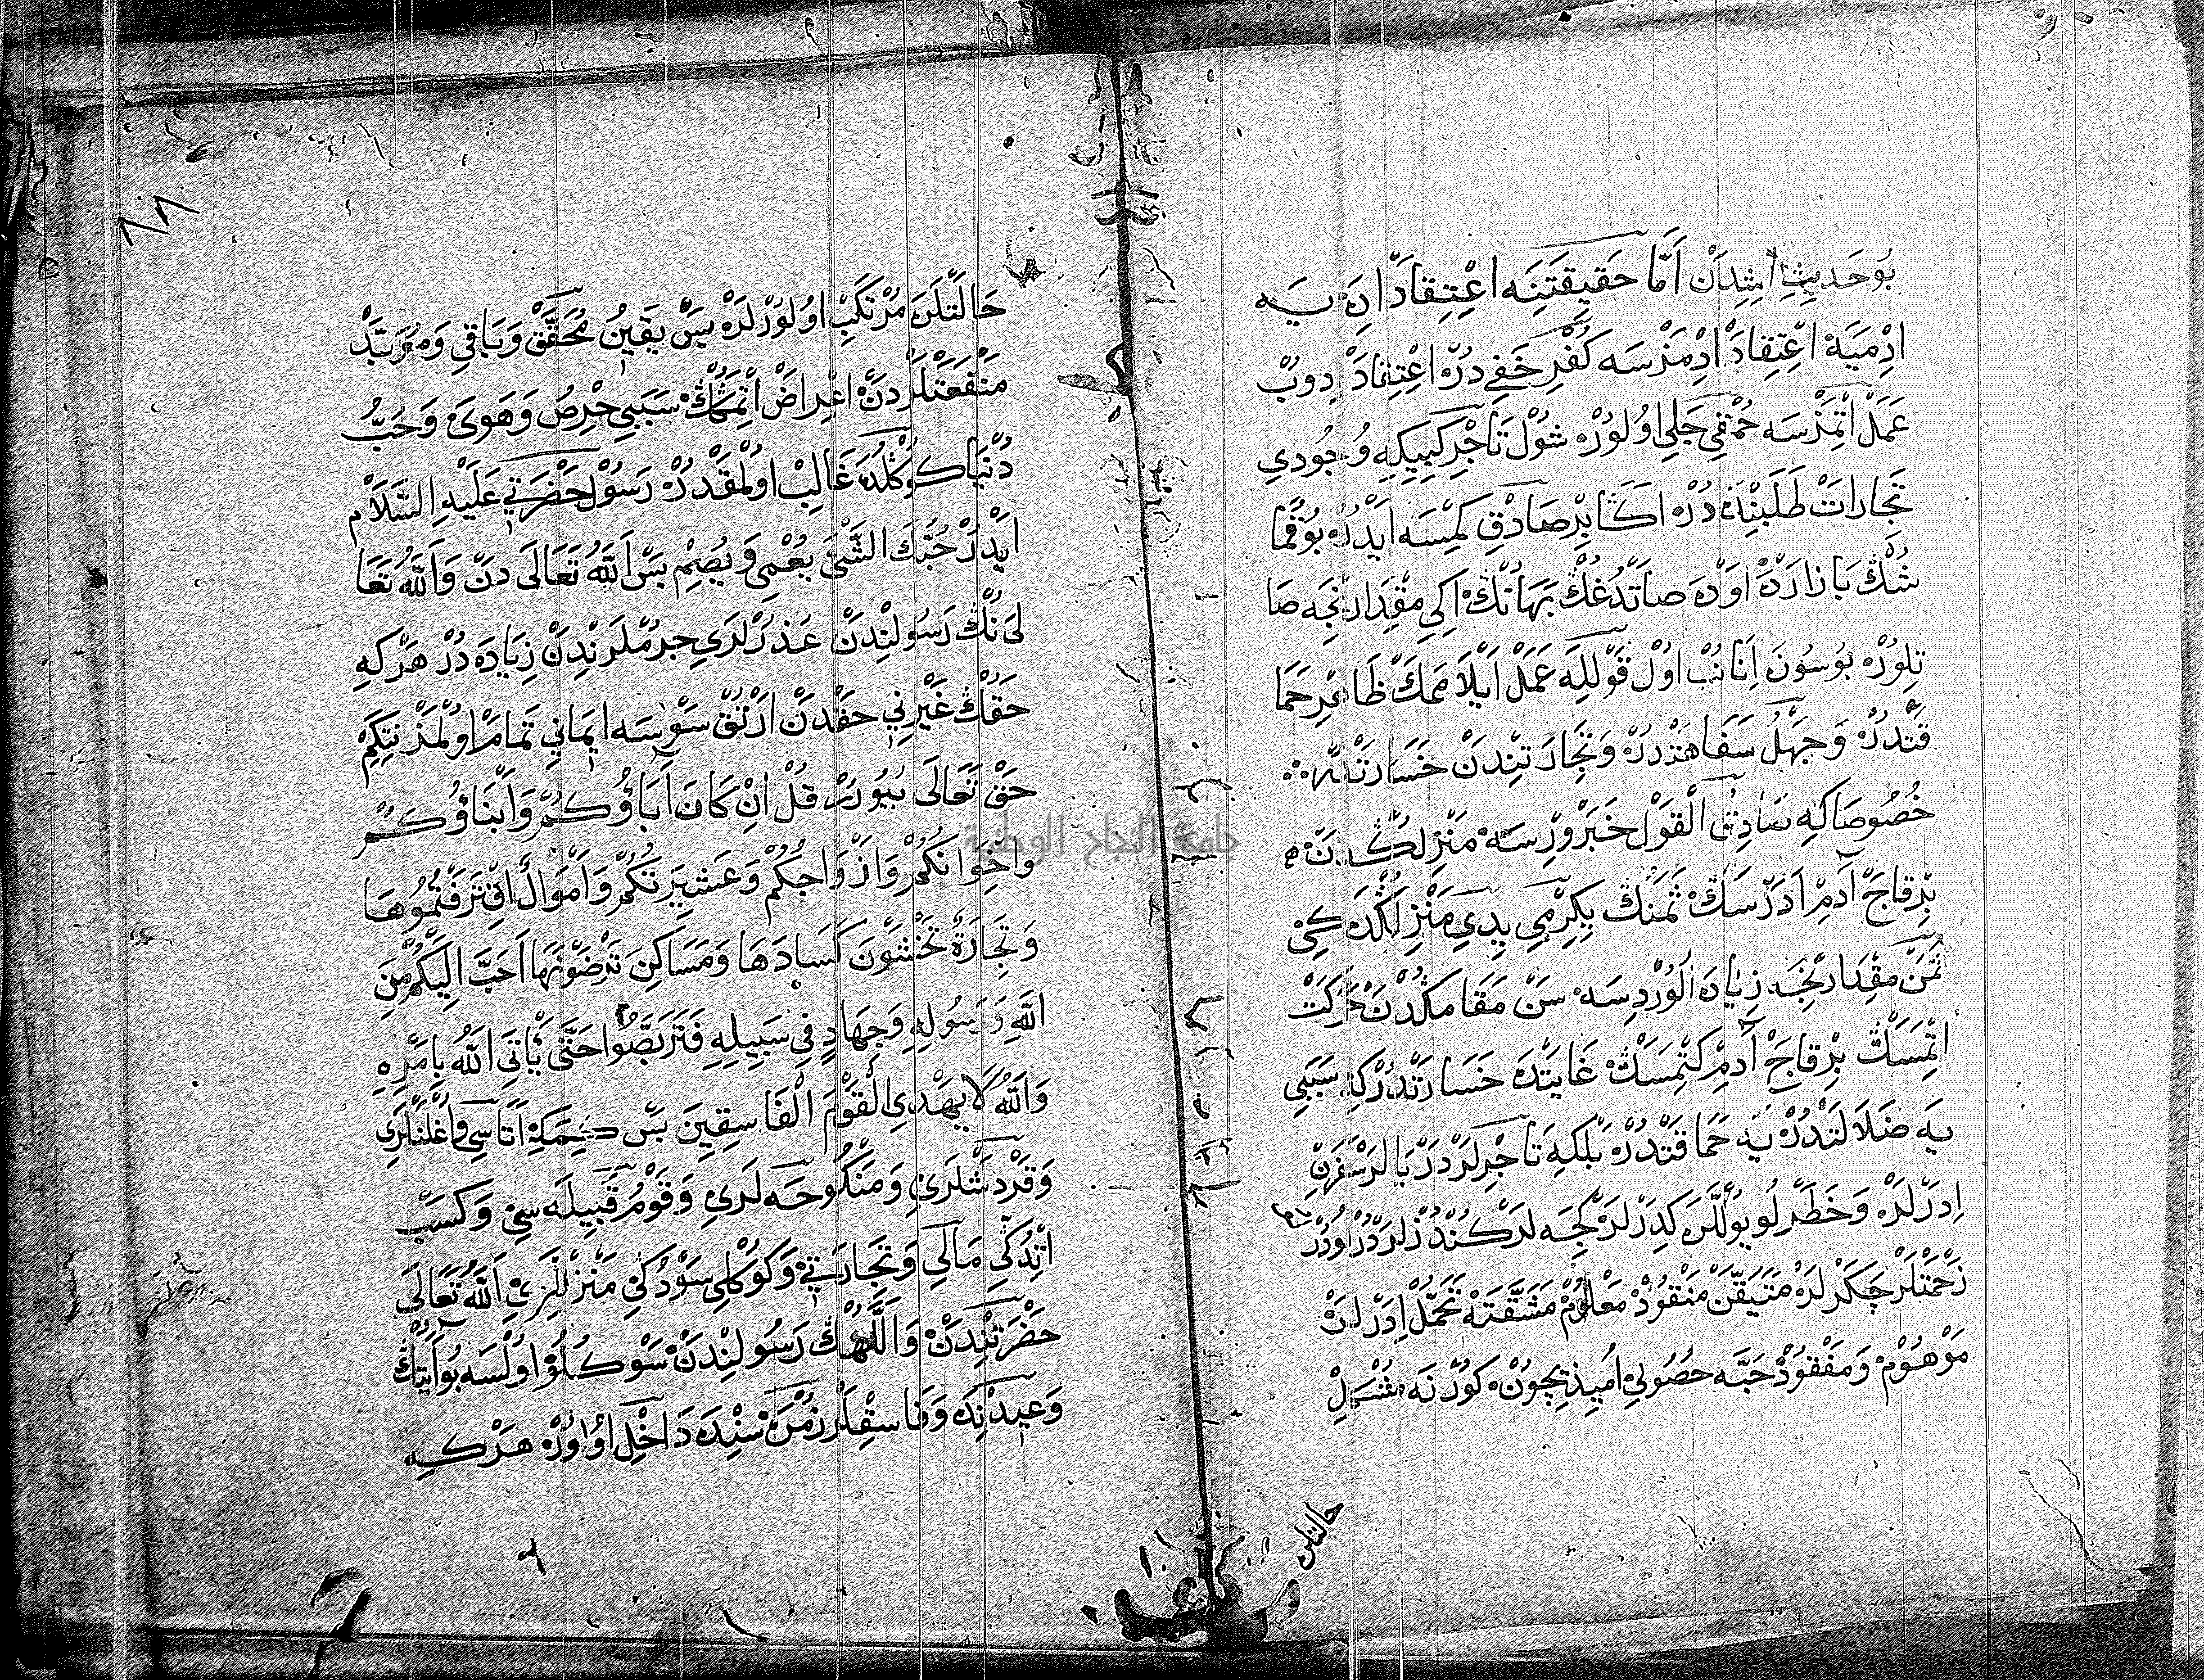 بُو حَدِيثِ اشِدَنْ اَمَّا حَقِيقَتِنَه اعْتِقَادْ اِدَه يَه
ادِمْيَه اعْتِقَادْ ادِمَزْسَه كُفْرِ خَفِي دُرْ اعْتِقَادْ ادوبْ
عَمَلْ اتْمَزْسَه حُمْقِي جَلِي اولُورْ شُولْ تَاجِرْ كِبِيكِه وُجُودِي
تِجَارَاتْ طَلَبِنْدَه دُرْ اڭَا بِرْ صَادِقِ كِمْسَه ايْدُرْ بُو قُمَا
شُڭْ بَازَارْدَه اوْدَه صَاتْدُغُڭْ بَهَانُڭْ اكِي مِقْدَارِنْجَه صَا
تِلُورْ بُوسُونَه اِنَانُبْ اوُلْ قَوْلِلَه عَمَلْ ايْلَامَمَكْ ظَاهِرِ حَمَا
قَتْدُرْ وَجَهْلُ سَفَاهَتْدُرْ وَتِجَارَتِنْدَنْ خَسَارَتْدُرْ
خُصُوصَا كِه صَادِقُ الْقَوْل خَبَرْ وِرْسَه مَنْزِلُڭْدَنْ
بِرْقَاجْ آدِمْ اَدَرْسَڭْ ثَمَنُڭْ يِكِرْمِي يِدِي مَنْزِلُڭْدَه كِي
ثَمَنْ مِقْدَارِنْجَه زِيَادَه اُلُورْ دِسَه سَنْ مَقَامُڭْدَنْ حَرَكَتْ
اتْمَسَڭْ بِرْقَاجْ آدِمْ كِتْمَسَڭْ غَايَتْدَه خَسَارَتْدُرْ كِه سَبَبِي
يَه ضَلَالَتْدُرْ يَه حَمَاقَتْدُرْ بَلْكِه تَاجِرْلَرْ دَرْيَالَرْ سَفَرِنْ
اِدَرْلَرْ وَخَطَرْلُو يُولَّرَه كِدَرْلَرْ كِجَه لَرْ كُنْدُزْلَرْ دُرْلُو دُرْلُو
زَحْمَتْلَرْ جَكَرْلَرْ مُتَيَقَّنْ مَنْقُودْ مَعْلُومْ مَشَقَّتَه تَحَمُّلْ اِدَرْلَرْ
مَوْهُومْ وَمَفْقُودْ حَبَّه حُصُولِي اُمِيدِيجُونْ كُورْ نَه مُشْكِلْ
حالتلره
حَالَتْلَرَه مُرْتَكِبْ اوُلُورْلَرْ بَسْ يَقِينُ مُحَقَّقْ وَبَاقِي وَمُؤَبَّدْ
مَنْفَعَتْلَرْدَنْ اعْرَاضْ اتْمَڭُڭْ سَبَبِي حِرْصُ وَهَوَى وَحُبُّ
دُنْيَا كُوڭُلْدَه غَالِبْ اوُلْمَقْدُرْ رَسُولْ حَضْرَتِي عَلَيْهِ السَّلَام
ايْدُرْ حُبُّكَ الشَّىْءَ يُعْمِي وَيُصِمُّ بَسْ اَللَّهُ تَعَالَى دَنْ وَاَللَّهُ تَعَا
لَى نُڭْ رَسُولِنْدَنْ عَذَرْلَرِي جُرْمْلَرِنْدَنْ زِيَادَه دُرْ هَرْ كِه
حَقُّڭْ غَيْرِنِي حَقْدَنْ ارْتُقْ سَوْسَه ايمَانِي تَمَامْ اوُلْمَزْ نِتَكِمْ
حَقْ تَعَالَى بُيُورُرْ قُلْ اِنْ كَانَ اَبَاؤُكُمْ وَاَبْنَاؤُكُمْ
وَاِخْوَانُكُمْ وَاَزْوَاجُكُمْ وَعَشِيرَتُكُمْ وَاَمْوَالٌ اقْتَرَفْتُمُوهَا
وَتِجَارَةٌ تَخْشَوْنَ كَسَادَهَا وَمَسَاكِنُ تَرْضَوْنَهَا اَحَبَّ اِلَيْكُمْ مِنَ
اللَّهِ وَرَسُولِهِ وَجِهَادٍ فِي سَبِيلِهِ فَتَرَبَّصُوا حَتَّى يَأْتِيَ اللَّهُ بِاَمْرِهِ
وَاللَّهُ لَا يَهْدِي الْقَوْمَ الْفَاسِقِينَ بَسْ كِيمِكِه اتَاسِي وَاُغُلْلَرِي
وَقَرْدَشْلَرِي وَمَنْكُوحَه لَرِي وَقَوْمُ قَبِيلَه سِي وَكَسْبْ
اتْدُكِي مَالِي وَتِجَارَتِي وَكُوڭُلِي سَوْدُكِي مَنْزِلْلَرِي اَللَّهُ تَعَالَى
حَضْرَتِنْدَنْ وَاَللَّهُڭْ رَسُولِنْدَنْ سَوْكُلُو اوُلْسَه بُو اَيَتُڭْ
وَعِيدِنْدَه وَفَاسِقْلَرْ زُمْرَه سِنْدَه دَاخِلْ اوُلُورْ هَرْ كِه